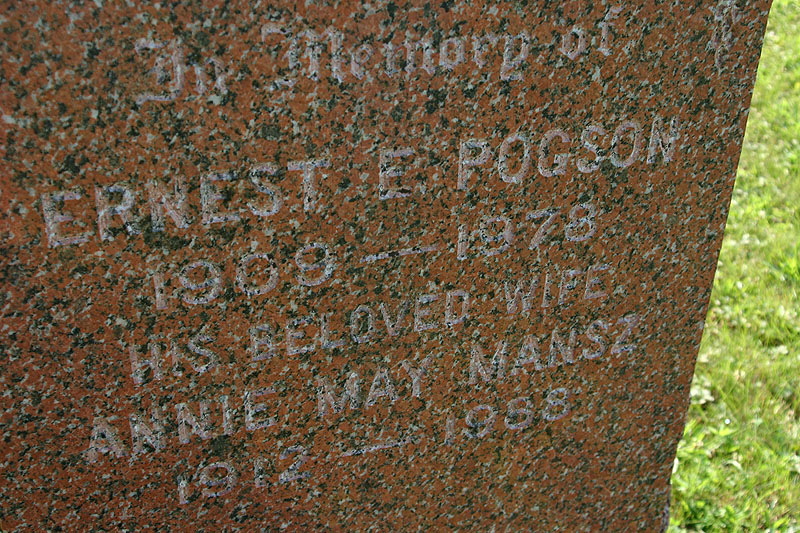 In Memory of
ERNEST E. POGSON
1909 — 1978
HIS BELOVED WIFE
ANNIE MAY MANSZ
1912 — 1988